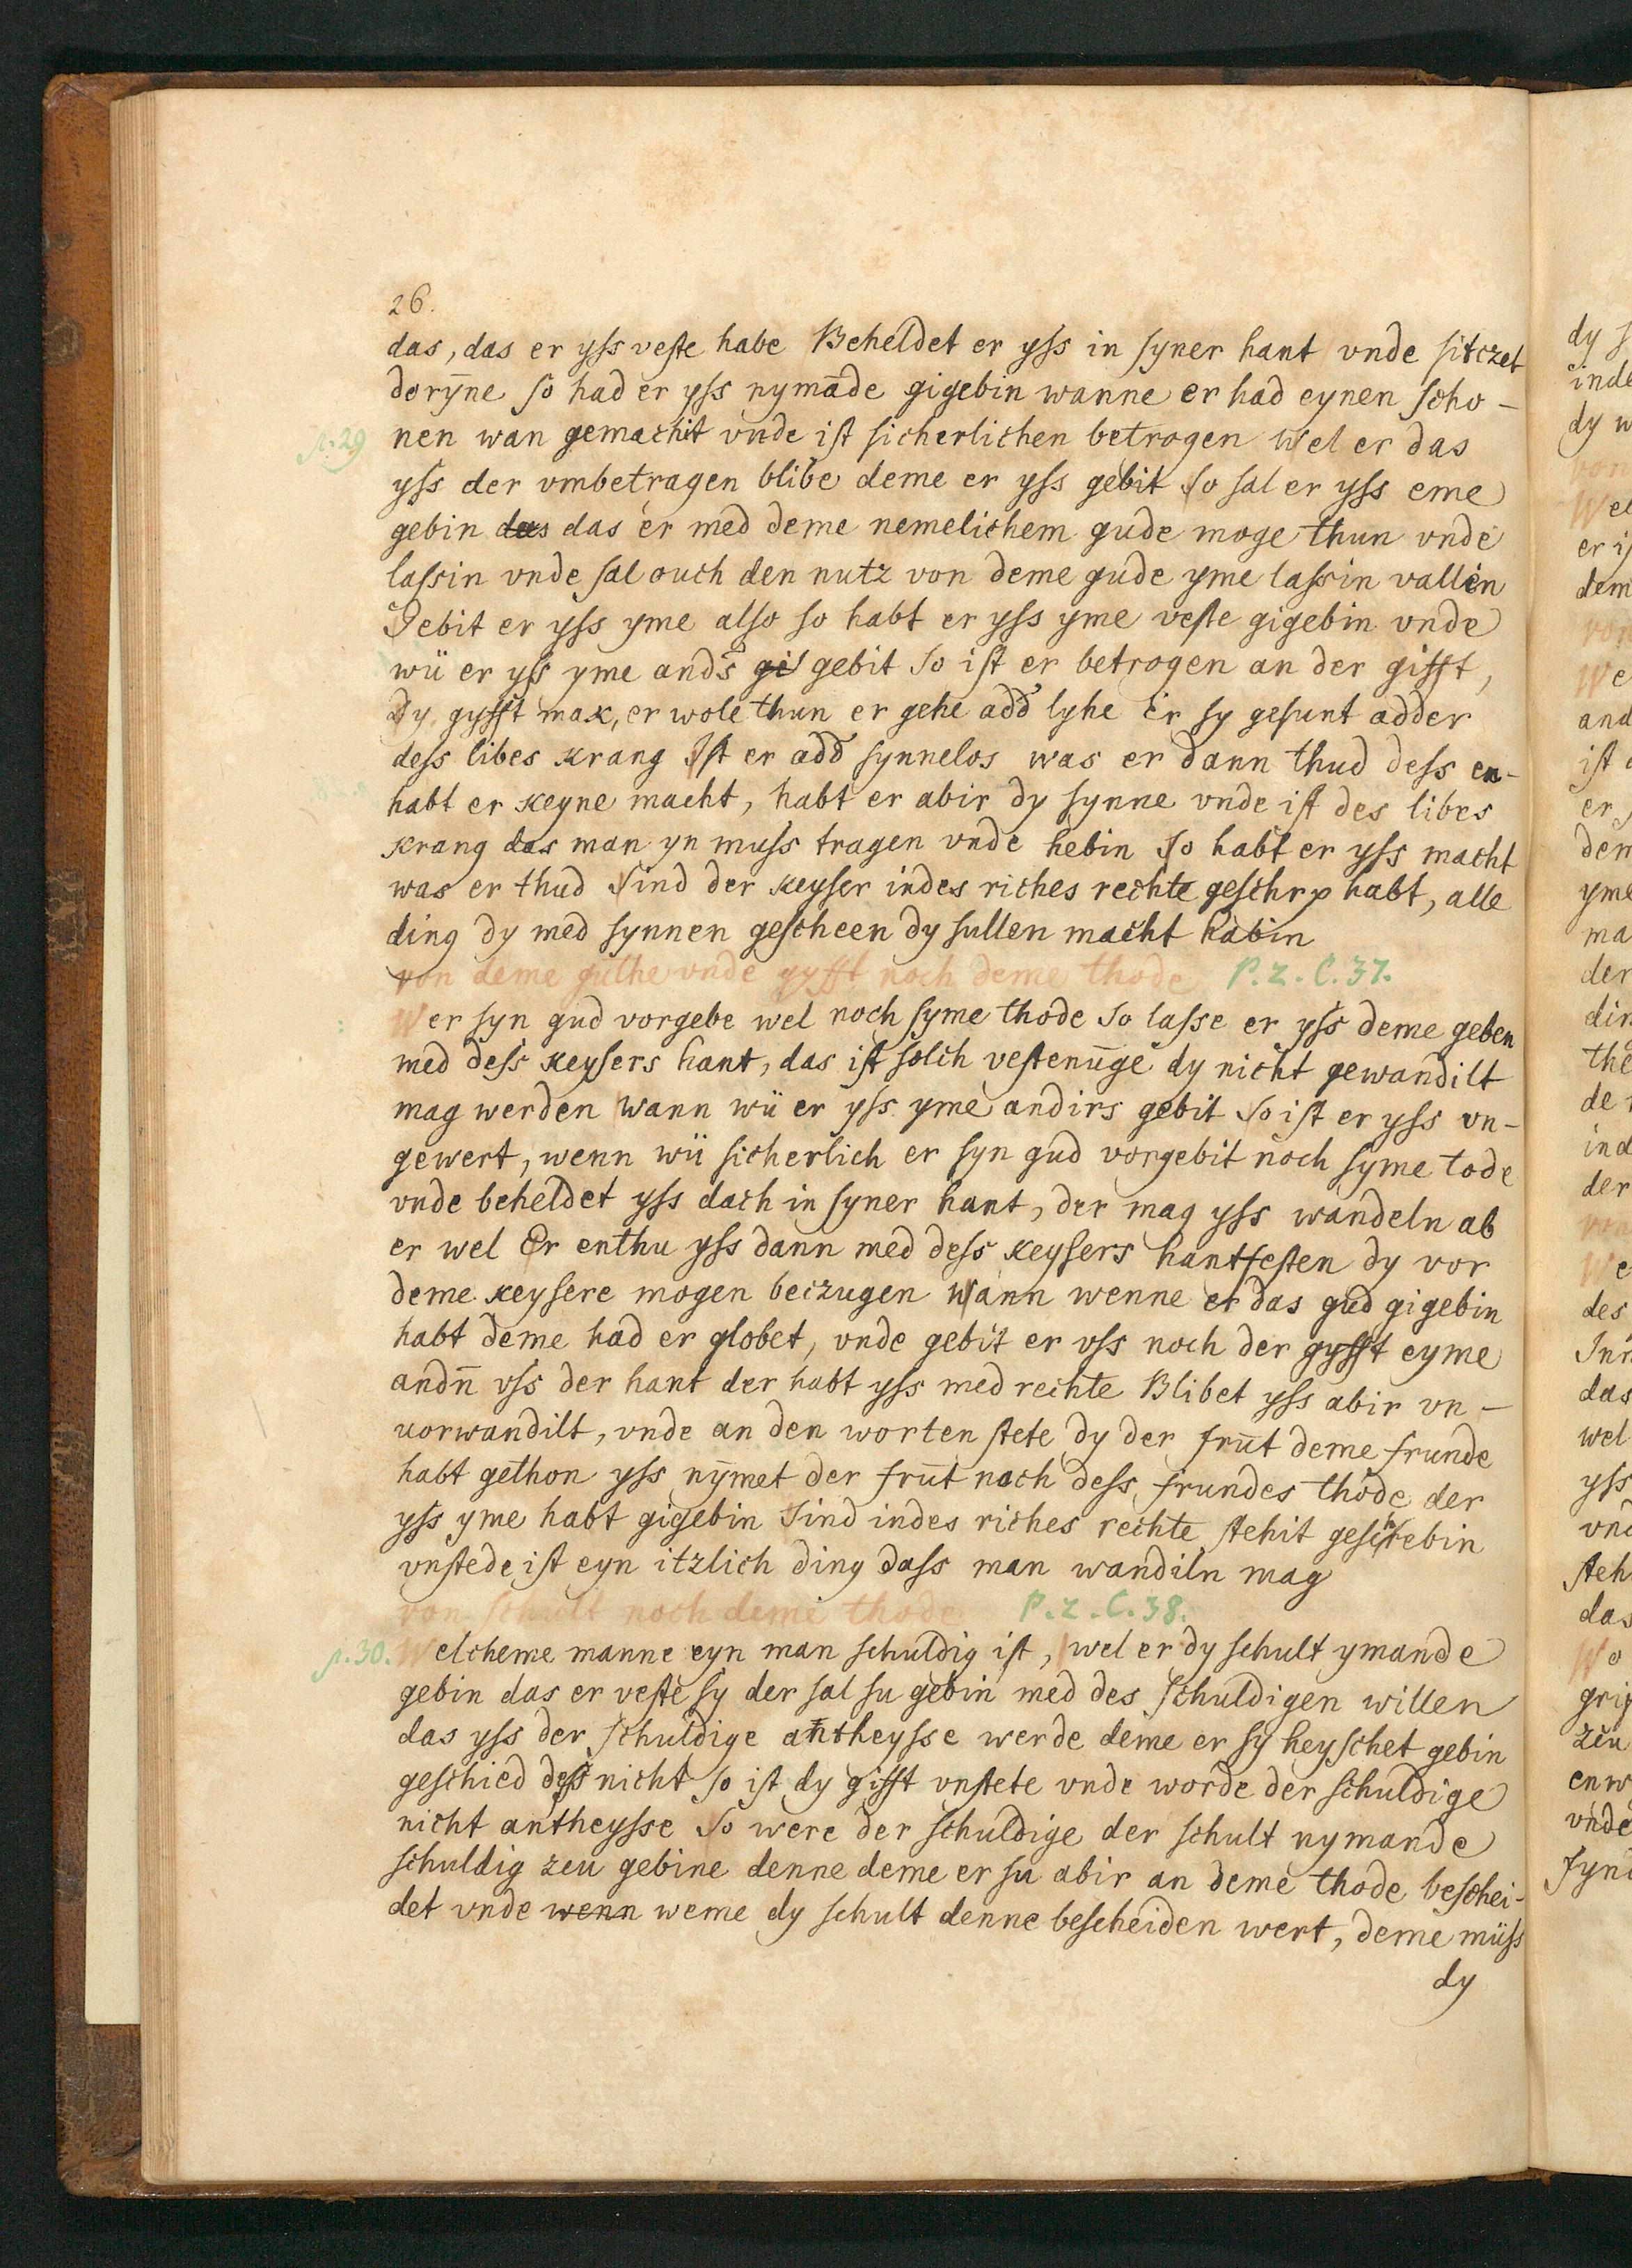 26.
das, das er yss veste habe Beheldet er yss in syner hant vnde sitczet
dorȳne so had er yss nymāde gigebin wanne er had eynen scho-
p. 29 nen wan gemachit vnde ist sicherlichen betrogen Wel er das
yss der vmbetragen blibe deme er yss gebit So sal er yss eme
gebin das das er med deme nemelichem gude moge thun vnde
lassin vnde sal ouch den nutz von deme gude yme lassin vallin
Gebit er yss yme also so habt er yss yme veste gigebin vnde
wü er yss yme ands gi gebit So ist er betrogen an der gifft,
Dy gyfft max, er wole thun er gehe add lyhe Er sy gesunt adder
dess libes krang Ist er add synnelos was er dann thud dess en-
habt er keyne macht, habt er abir dy synne vnde ist des libes
krang das man yn muss tragen vnde hebin So habt er yss macht
was er thud Sind der keyser indes riches rechte geschrp habt, alle
ding dy med synnen gescheen dy sullen macht habin
von deme guthe vnde gyfft noch deme thode P. 2. C. 37.
Wer syn gud vorgebe wel noch syme thode So lasse er yss deme geben
med dess keysers hant, das ist solch vestenūge dy nicht gewandilt
mag werden Wann wü er yss yme andirs gebit So ist er yss vn-
gewert, wenn wü sicherlich er syn gud vorgebit noch syme tode
vnde beheldet yss dach in syner hant, der mag yss wandeln ab
er wel Er enthu yss dann med dess keysers hantfesten dy vor
deme keysere mogen beczugen Wann wenne er das gud gigebin
habt deme had er globet, vnde gebit er vss noch der gyfft eyme
andn̄ vss der hant der habt yss med rechte Blibet yss abir vn-
uorwandilt, vnde an den worten stete dy der frūt deme frunde
habt gethon yss nȳmet der frūt noch dess frundes thode der
yss yme habt gigebin Sind indes riches rechte stehit geschrebin
vnstede ist eyn itzlich ding dass man wandiln mag
von schult noch deme thode P. 2. C. 38.
p. 30. Welcheme manne eyn man schuldig ist, wel er dy schult ymande
gebin das er veste sy der sal su gebin med des schuldigen willen
das yss der schuldige antheysse werde deme er sy heyschet gebin
geschied dess nicht so ist dy gifft vnstete vnde worde der schuldige
nicht antheysse So were der schuldige der schult nymande
schuldig zcu gebine denne deme er su abir an deme thode beschei-
det vnde wenn weme dy schult denne bescheiden wert, deme müss
dy